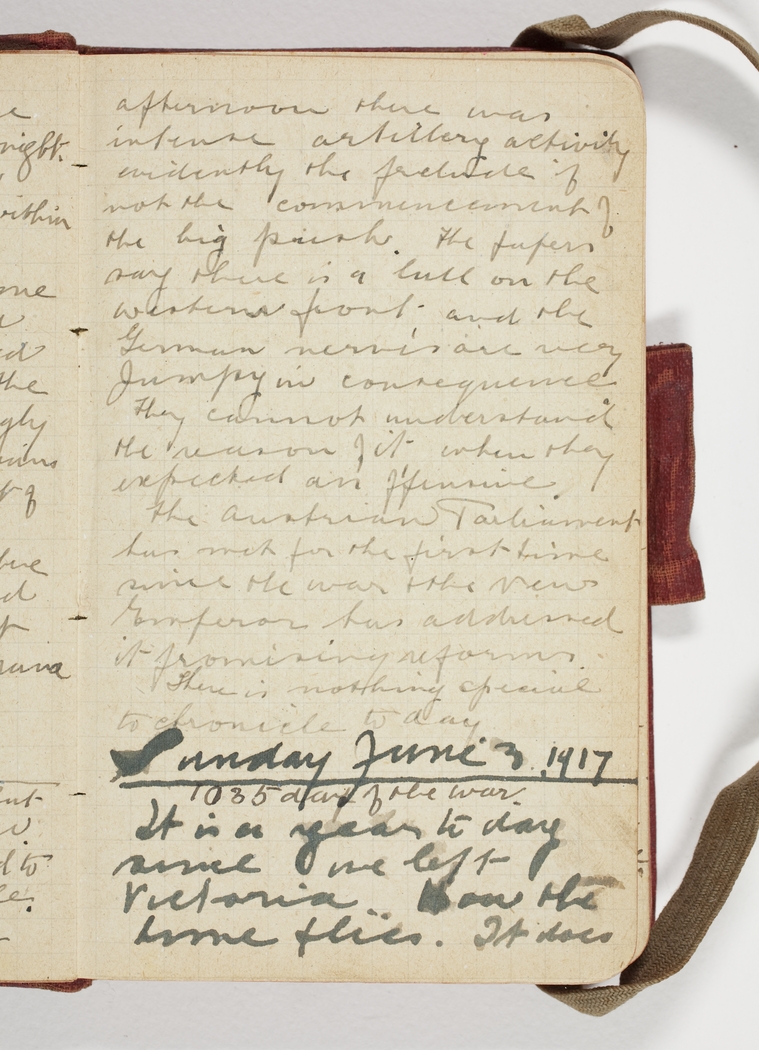 e
night.
within
me
ed
the
gly
t of
d
ent
d to
afternoon there was
intense artillery activity
evidently the prelude if
not the commencement of
the big push. The papers
say there is a lull on the
western front and the
German nerves are very
Jumpy in consequence
They cannot understand
the reason of it when they
expected an offensive.
The Austrian Parliament
has met for the first time
since the war & the new
Emperor has addressed
it promising reforms.
There is nothing special
to chronicle to day
Sunday June 3. 1917
1035 day of the war.
It is a year to day
since we left
Victoria. How the
time flies. It does